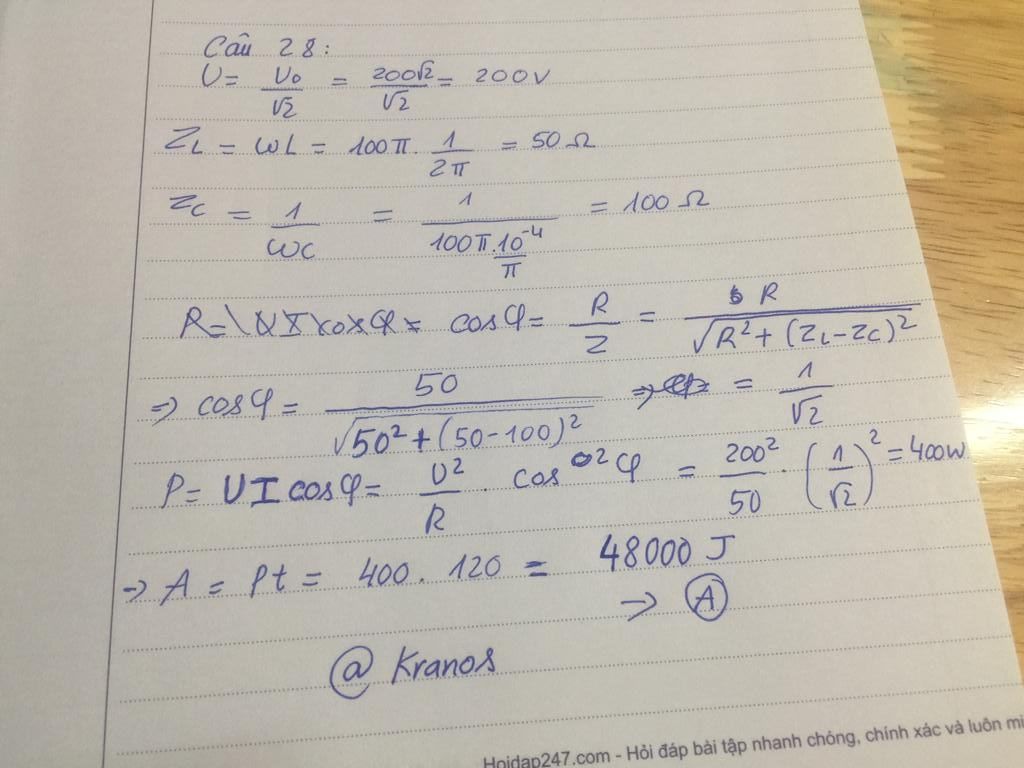 Câu 28:
U = U₀/√2 = 200√2/√2 = 200V
Z_L = ωL = 100π . 1/2π = 50 Ω
Z_C = 1/ωC = 1/(100π.10⁻⁴/π) = 100 Ω
cosφ = R/Z = R/√(R² + (Z_L - Z_C)²)
=> cosφ = 50/√(50² + (50-100)²) => = 1/√2
P = UI cosφ = U²/R . cos²φ = 200²/50 . (1/√2)² = 400W
-> A = Pt = 400 . 120 = 48000 J
-> A
@ Kranos
Hoidap247.com - Hỏi đáp bài tập nhanh chóng, chính xác và luôn